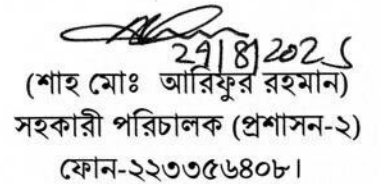 24/8/2025
(শাহ মোঃ আরিফুর রহমান)
সহকারী পরিচালক (প্রশাসন-২)
ফোন-২২৩৩৫৬৪০৮।